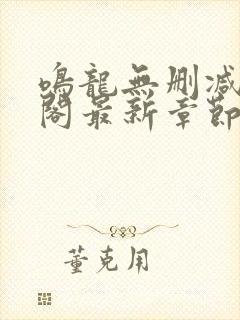 鳴龍無删减
閣最新章節
董克用